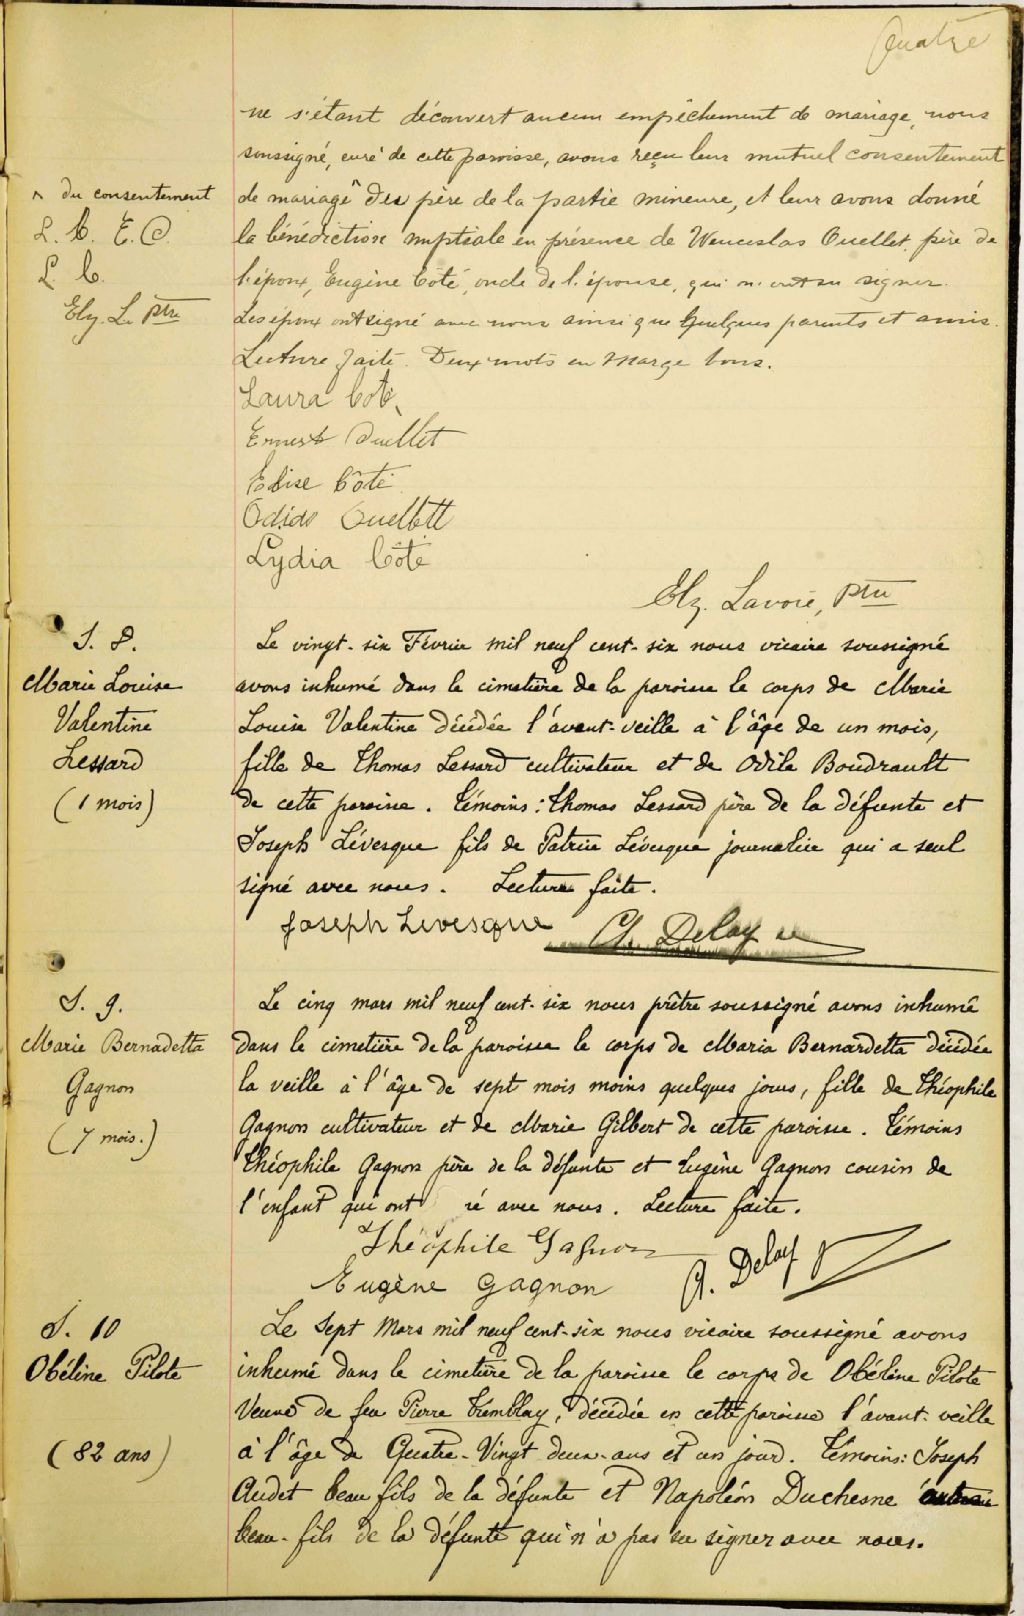 Quatre
ne s'étant découvert aucun empêchement de mariage, nous
soussigné, curé de cette paroisse, avons reçu leur mutuel consentement
^ du consentement
de mariage ^ des père de la partie mineure, et leur avons donné
L. C. E. O.
la bénédiction nuptiale en présence de Wenceslas Ouellet, père de
L. C.
l'époux, Eugène Coté, oncle de l'épouse, qui n'ont su signer.
Elz. L. Ptre
Les époux ont signé avec nous ainsi que quelques parents et amis.
Lecture faite. Deux mots en marge bons.
Laura Coté
Ernest Ouellet
Elise Côté
Odido Ouellett
Lydia Côté
Elz. Lavoie, Ptre
S. 8.
Marie Louise
Valentine
Lessard
(1 mois)
Le vingt-six Février mil neuf cent-six nous vicaire soussigné
avons inhumé dans le cimetière de la paroisse le corps de Marie
Louise Valentine décédée l'avant-veille à l'âge de un mois,
fille de Thomas Lessard cultivateur et de Odila Boudrault
de cette paroisse. Témoins: Thomas Lessard père de la défunte et
Joseph Lévesque fils de Patrice Lévesque journalier qui a seul
signé avec nous. Lecture faite.
Joseph Levesque Ch. Delay
S. 9.
Marie Bernadetta
Gagnon
(7 mois.)
Le cinq mars mil neuf cent-six nous prêtre soussigné avons inhumé
dans le cimetière de la paroisse le corps de Maria Bernardetta décédée
la veille à l'âge de sept mois moins quelques jours, fille de Théophile
Gagnon cultivateur et de Marie Gilbert de cette paroisse. Témoins
Théophile Gagnon père de la défunte et Eugène Gagnon cousin de
l'enfant qui ont ré avec nous. Lecture faite.
Théophile Gagnon
Eugène Gagnon Ch. Delay
S. 10
Obéline Pilote
(82 ans)
Le Sept Mars mil neuf cent-six nous vicaire soussigné avons
inhumé dans le cimetière de la paroisse le corps de Obéline Pilote
Veuve de feu Pierre Tremblay, décédée en cette paroisse l'avant-veille
à l'âge de Quatre-Vingt deux-ans et un jour. Témoins: Joseph
Audet beau fils de la défunte et Napoléon Duchesne
beau-fils de la défunte qui n'a pas su signer avec nous.